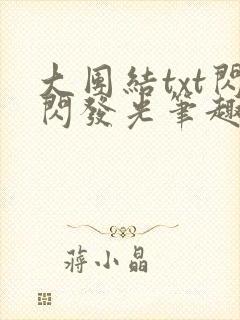 大團結txt閃
閃發光筆趣
蔣小晶